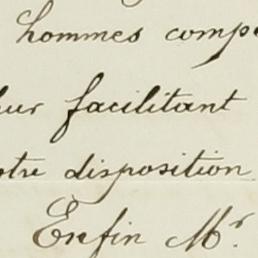 hommes comp
facilitant
disposition
Enfin Mr.